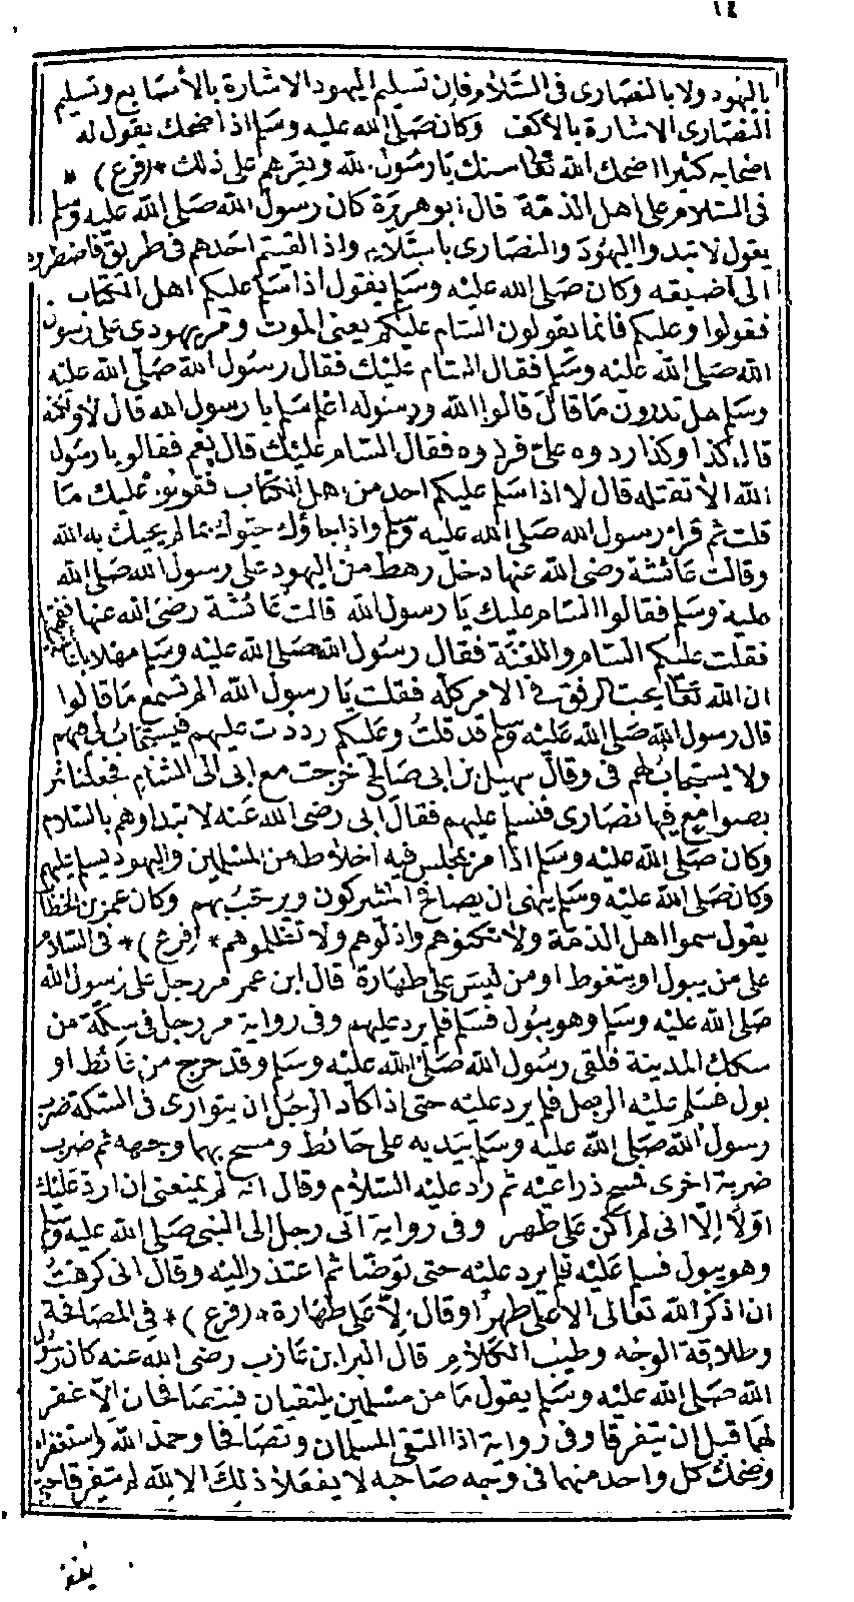 ١٤
باليهود ولا بالنصارى فى السلام فان تسليم اليهود الاشارة بالأصابع وتسليم
النصارى الاشارة بالأكف وكان صلى الله عليه وسلم اذا ضحك يقول له
اصحابه كثيرا اضحك الله تعا سنك يا رسول الله ويقرهم على ذلك * (فرع) *
فى السلام على اهل الذمة قال ابو هريرة كان رسول الله صلى الله عليه وسلم
يقول لا تبدوا اليهود والنصارى بالسلام واذا لقيتم احدهم فى طريق فاضطروه
الى اضيقه وكان صلى الله عليه وسلم يقول اذا سلم عليكم اهل الكتاب
فقولوا وعليكم فانما يقولون السام عليكم يعنى الموت ومر يهودى على رسول
الله صلى الله عليه وسلم فقال السام عليك فقال رسول الله صلى الله عليه
وسلم هل تدرون ما قال قالوا الله ورسوله اعلم سلم يا رسول الله قال لا ولكنه
قال كذا وكذا ردوه على فردوه فقال السام عليك قال نعم فقالو يا رسول
الله الا تقتله قال لا اذا سلم عليكم احد من اهل الكتاب فقولو عليك ما
قلت ثم قرا رسول الله صلى الله عليه وسلم واذا جاؤك حيوك بما لم يحيك به الله
وقالت عائشة رضى الله عنها دخل رهط من اليهود على رسول الله صلى الله
عليه وسلم فقالوا السام عليك يا رسول الله قالت عائشة رضى الله عنها ففهمتها
فقلت عليكم السام واللعنة فقال رسول الله صلى الله عليه وسلم مهلا يا عائشة
ان الله تعا يحب الرفق فى الامر كله فقلت يا رسول الله الم تسمع ما قالوا
قال رسول الله صلى الله عليه وسلم قد قلت وعليكم رددت عليهم فيستجاب لى فيهم
ولا يستجاب لهم فى وقال سهيل بن ابى صالح خرجت مع ابى الى الشام فجعلنا نمر
بصوامع فيها نصارى فنسلم عليهم فقال ابى رضى الله عنه لا تبداوهم بالسلام
وكان صلى الله عليه وسلم اذا مر بمجلس فيه اخلاط من المسلمين واليهود يسلم عليهم
وكان صلى الله عليه وسلم ينهى ان يصافح المشركون ويرحب بهم وكان عمر بن الخطاب
يقول سموا اهل الذمة ولا تكنوهم واذلوهم ولا تظلموهم * (فرع) * فى السلام
على من يبول او يتغوط او من ليس على طهارة قال ابن عمر مر رجل على رسول الله
صلى الله عليه وسلم وهو يبول فسلم فلم يرد عليهم وفى رواية مر رجل فى سكة من
سكك المدينة فلقى رسول الله صلى الله عليه وسلم وقد خرج من غائط او
بول فسلم عليه الرجل فلم يرد عليه حتى اذا كاد الرجل ان يتوارى فى السكة ضرب
رسول الله صلى الله عليه وسلم بيديه على حائط ومسح بهما وجهه ثم ضرب
ضربة اخرى فمسح ذراعيه ثم رد عليه السلام وقال انه لم يمنعنى ان ارد عليك
اولا الا انى لم اكن على طهر وفى رواية اتى رجل الى النبى صلى الله عليه وسلم
وهو يبول فسلم عليه فلم يرد عليه حتى توضا ثم اعتذر اليه وقال انى كرهت
ان اذكر الله تعالى الا على طهر او قال الا على طهارة * (فرع) * فى المصافحة
وطلاقة الوجه وطيب الكلام قال البرا بن عازب رضى الله عنه كان رسول
الله صلى الله عليه وسلم يقول ما من مسلمين يلتقيان فيتصافحان الا غفر
لهما قبل ان يتفرقا وفى رواية اذا التقى المسلمان وتصافحا وحمد الله واستغفراه
وضحك كل واحد منهما فى وجه صاحبه لا يفعلا ذلك الا لله لم يتفرقا حتى
يغفر